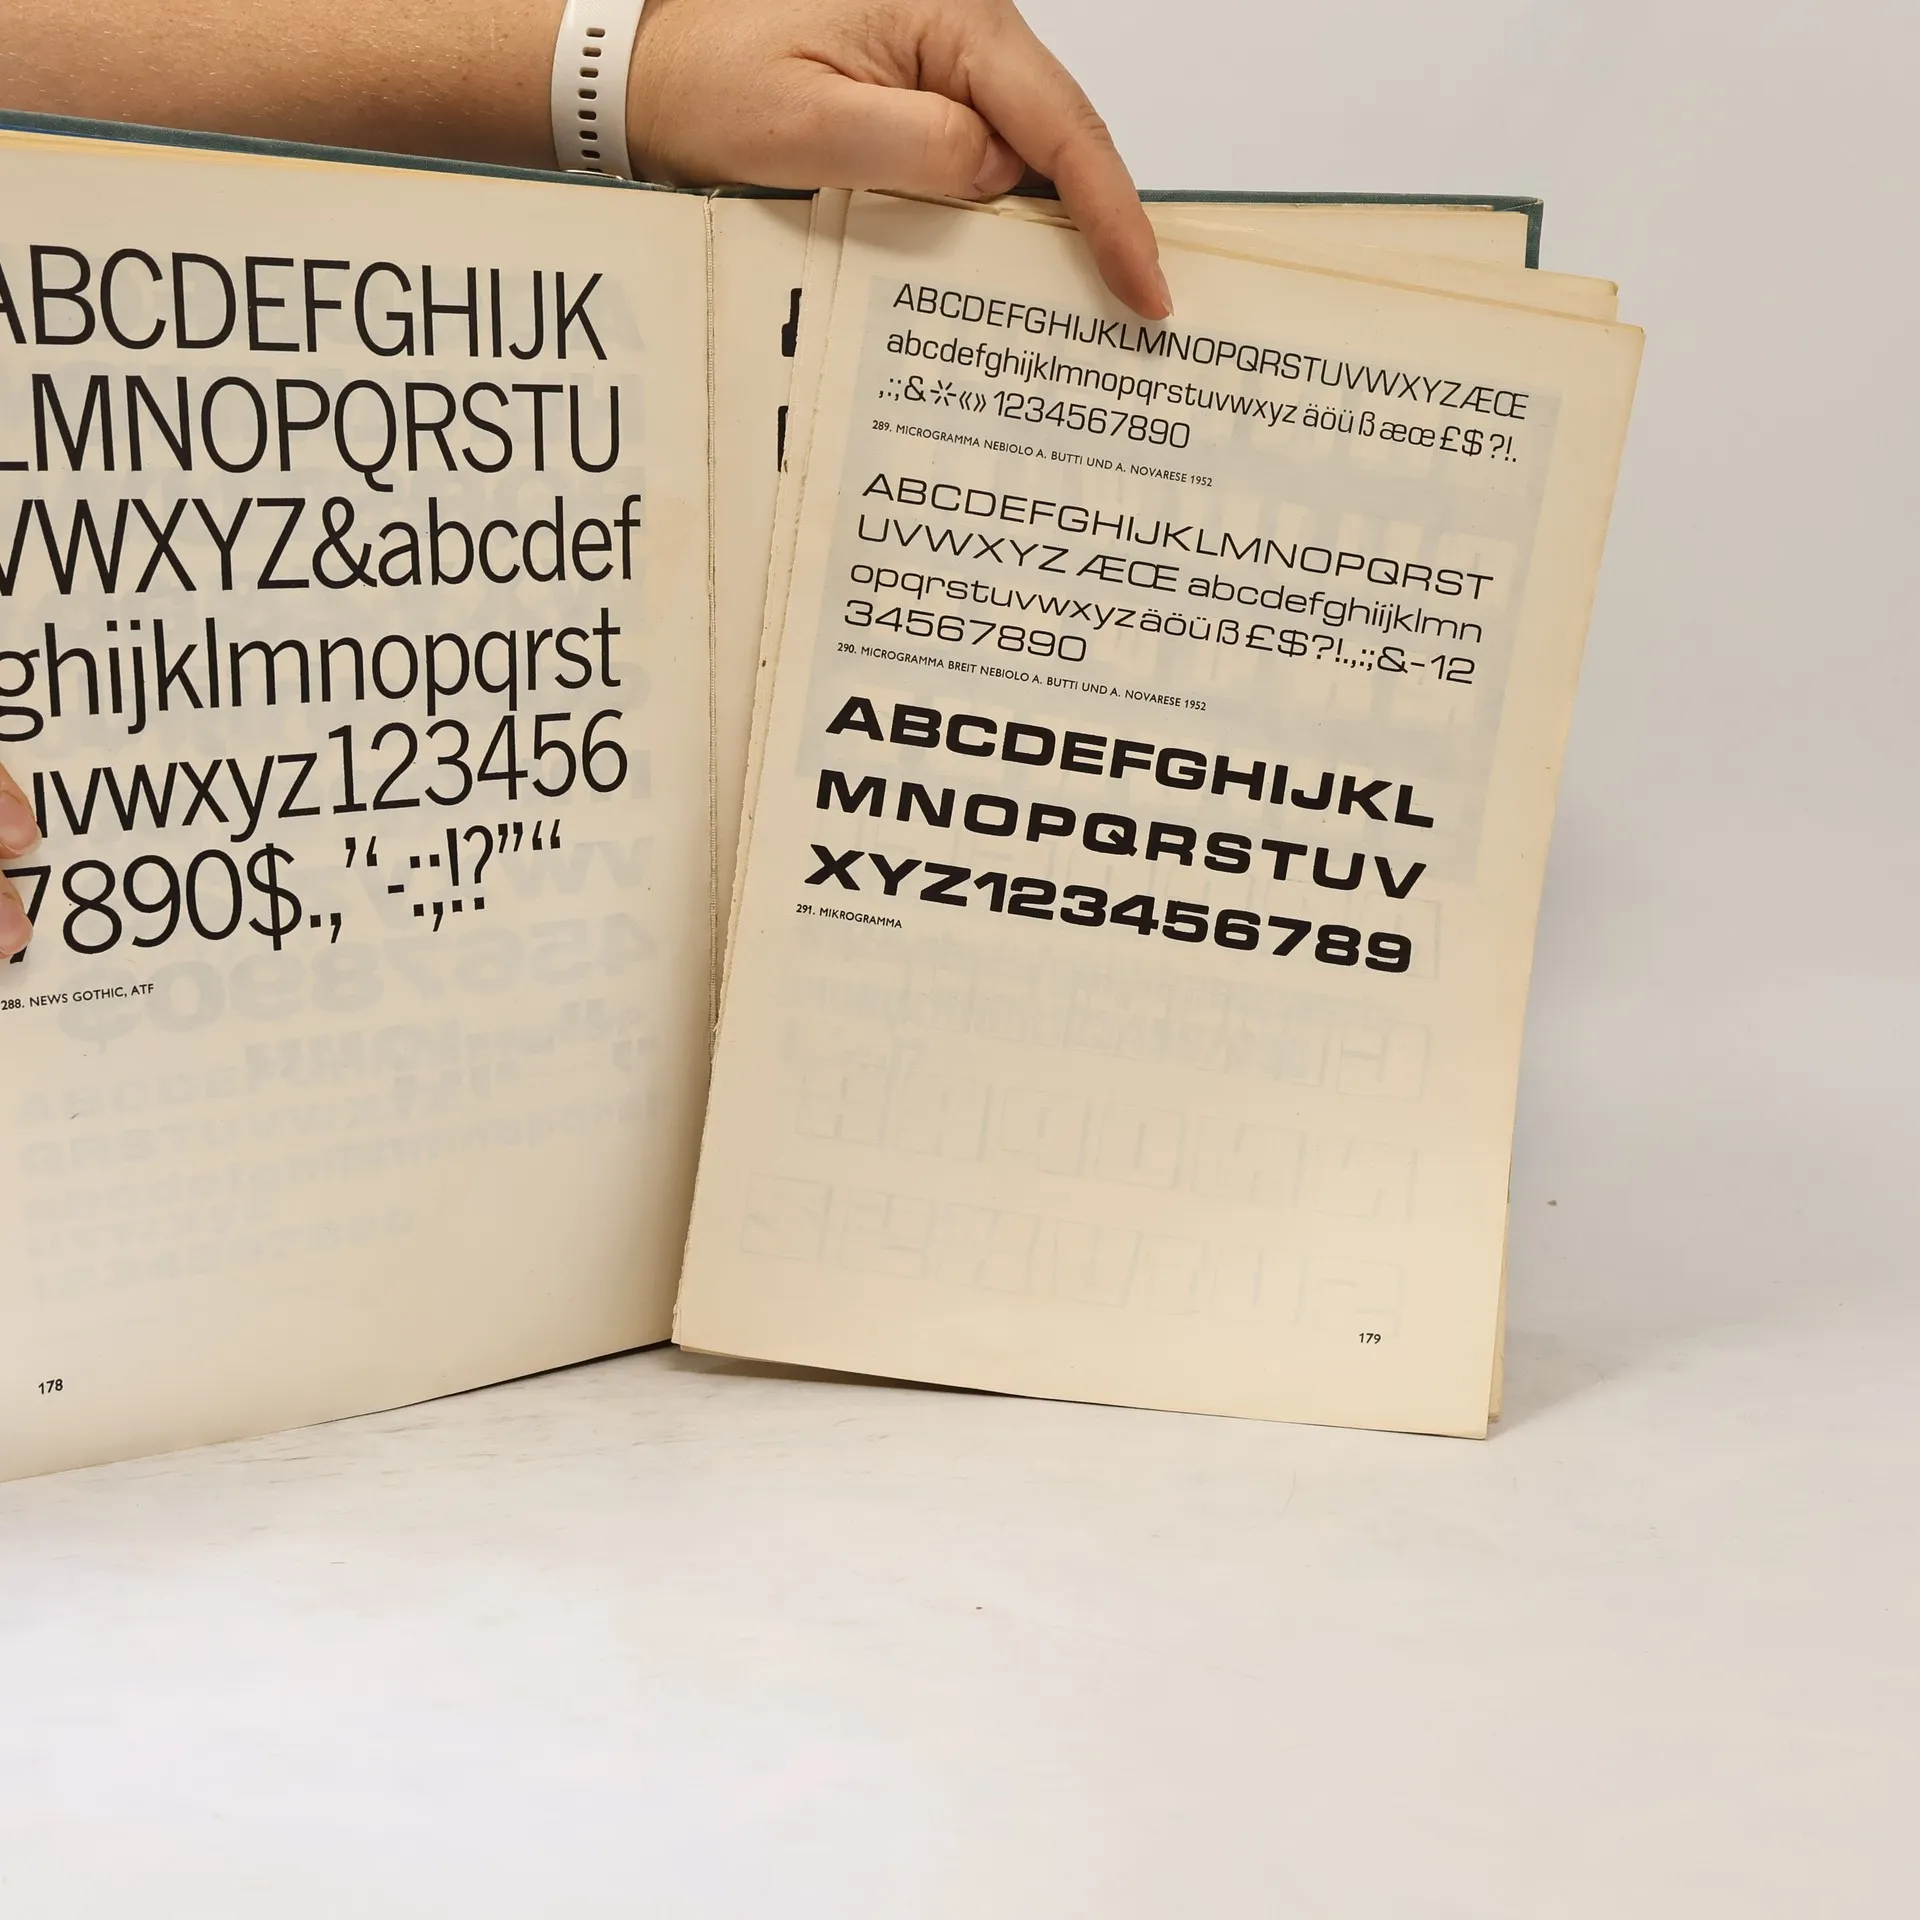 ABCDEFGHIJK
LMNOPQRSTU
VWXYZ&abcdef
ghijklmnopqrst
uvwxyz123456
7890$.,’‘-:;!?”“
288. NEWS GOTHIC, ATF
178
ABCDEFGHIJKLMNOPQRSTUVWXYZÆŒ
abcdefghijklmnopqrstuvwxyz äöüß æœ£$?!.
,:;&*«» 1234567890
289. MICROGRAMMA NEBIOLO A. BUTTI UND A. NOVARESE 1952
ABCDEFGHIJKLMNOPQRST
UVWXYZ ÆŒ abcdefghiijklmn
opqrstuvwxyzäöüß£$?!.,:;&-12
34567890
290. MICROGRAMMA BREIT NEBIOLO A. BUTTI UND A. NOVARESE 1952
ABCDEFGHIJKL
MNOPQRSTUV
XYZ123456789
291. MIKROGRAMMA
179